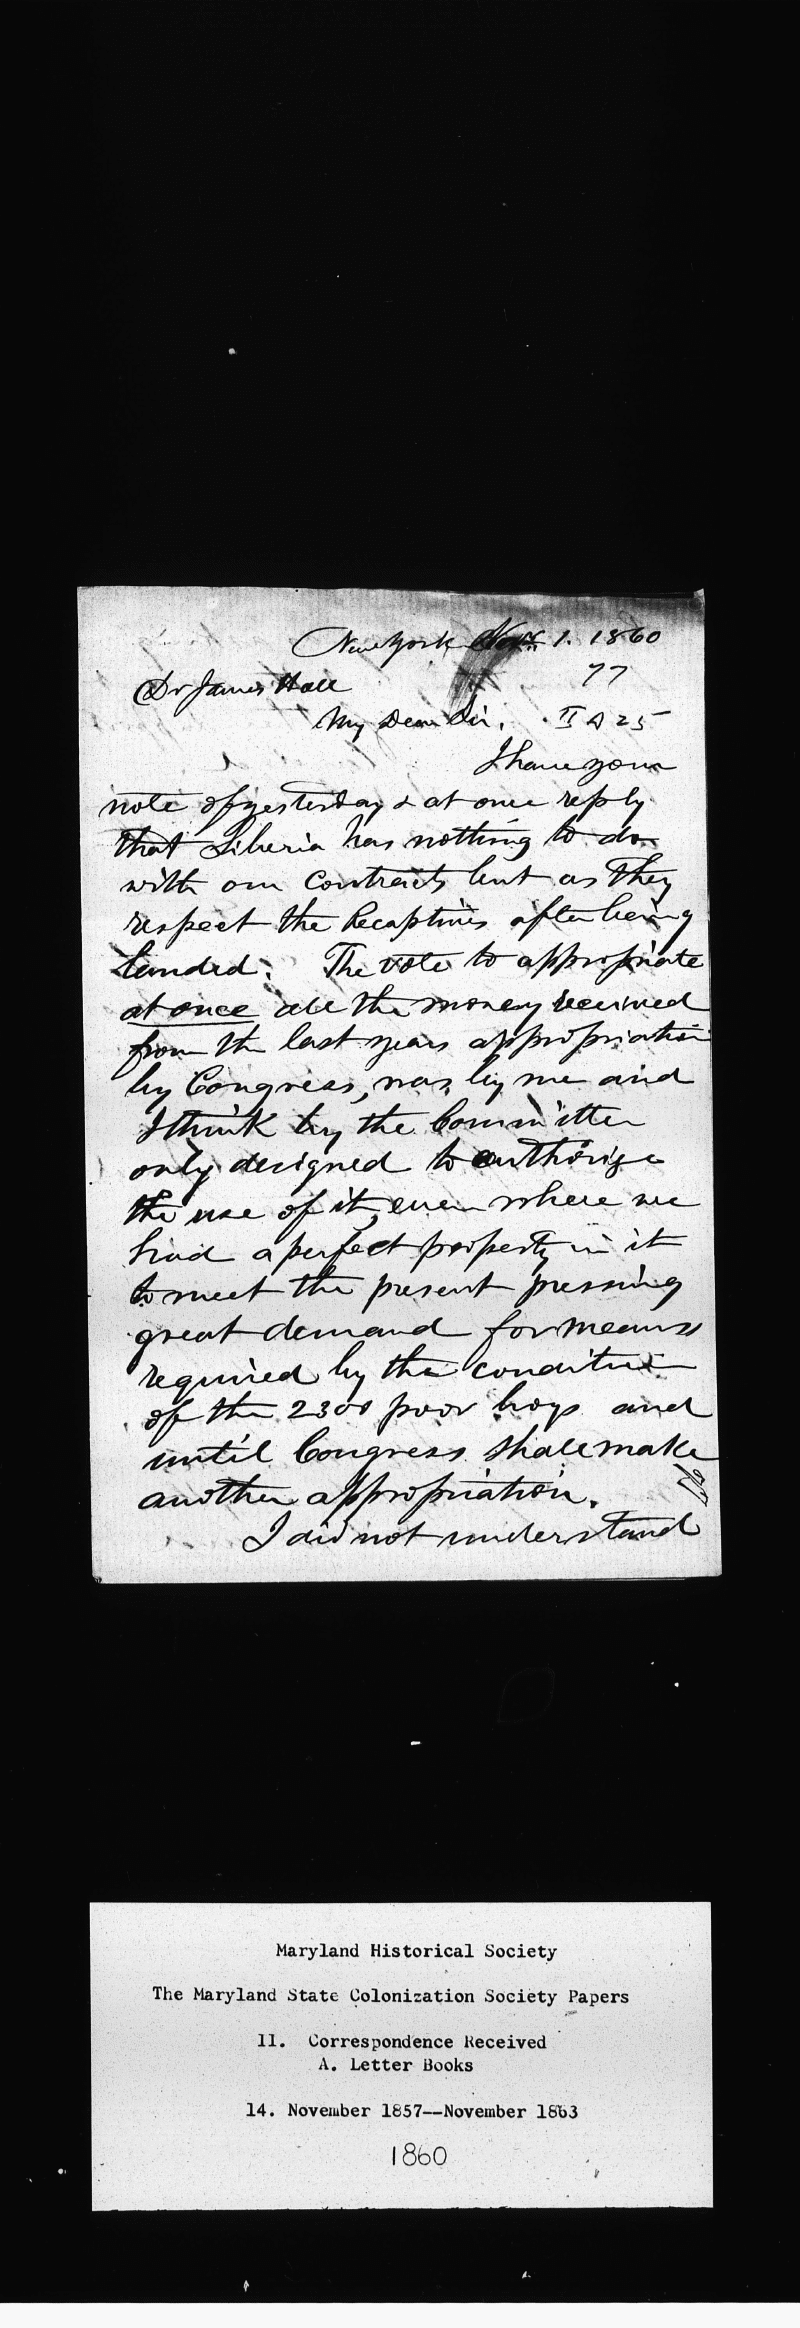 New York Nov. 1. 1860
77
Dr James Hall
My Dear Sir. II A 25
I have your
note of yesterday & at once reply
that Liberia has nothing to do
with our Contracts but as they
respect the Recaptives after being
landed. The vote to appropriate
at once all the money received
from the last years appropriation
by Congress, was, by me and
I think by the Committee
only designed to authorize
the use of it, even where we
had a perfect property in it
to meet the present pressing
great demand for means
required by the condition
of the 2300 poor boys and
until Congress shall make
another appropriation.
I did not understand
Maryland Historical Society
The Maryland State Colonization Society Papers
11. Correspondence Received
A. Letter Books
14. November 1857--November 1863
1860